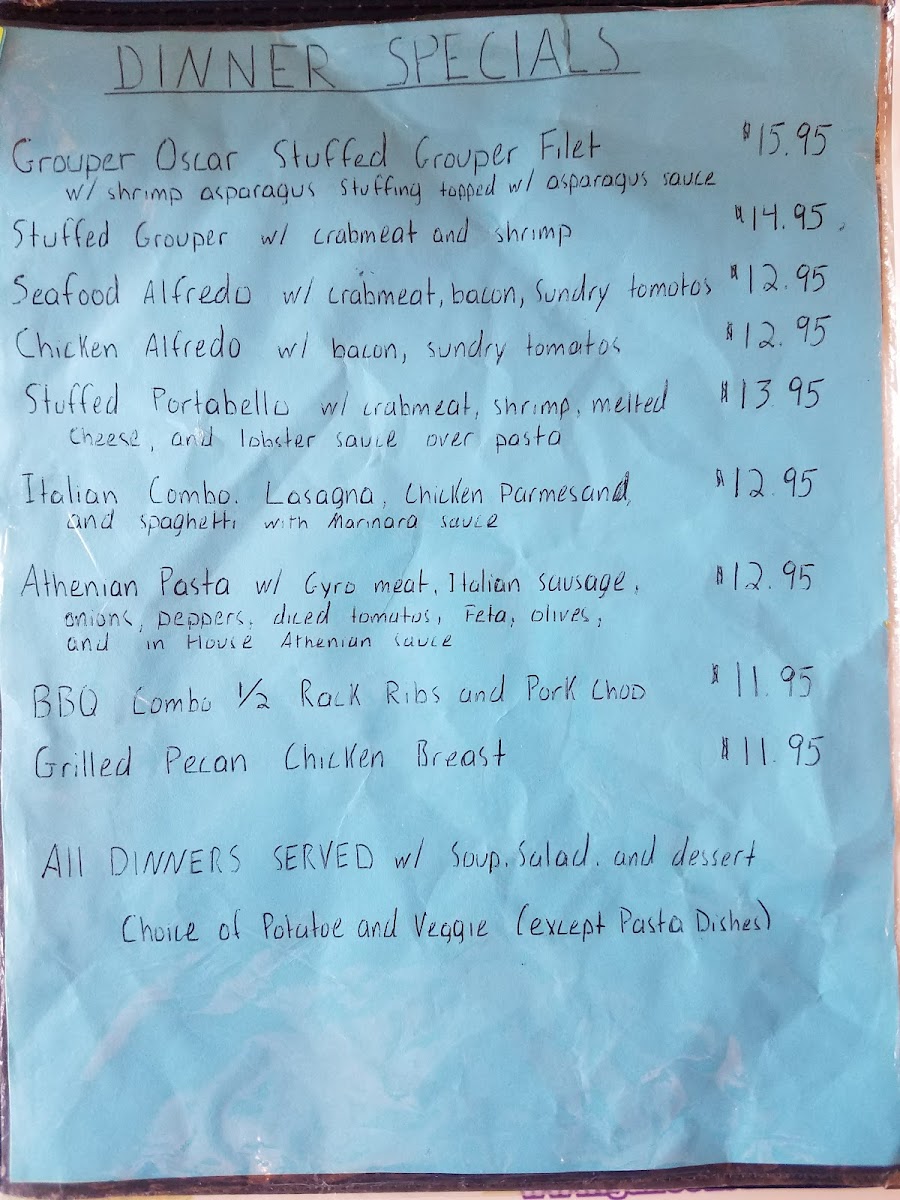 DINNER SPECIALS
Grouper Oscar Stuffed Grouper Filet $15.95
w/ shrimp asparagus stuffing topped w/ asparagus sauce
Stuffed Grouper w/ crabmeat and shrimp $14.95
Seafood Alfredo w/ crabmeat, bacon, Sundry tomotos $12.95
Chicken Alfredo w/ bacon, sundry tomatos $12.95
Stuffed Portabello w/ crabmeat, shrimp, melted $13.95
Cheese, and lobster sauce over pasta
Italian Combo. Lasagna, Chicken Parmesand, $12.95
and spaghetti with Marinara sauce
Athenian Pasta w/ Gyro meat, Italian sausage, $12.95
onions, peppers, diced tomatos, Feta, olives,
and in House Athenian sauce
BBQ Combo 1/2 Rack Ribs and Pork Chop $11.95
Grilled Pecan Chicken Breast $11.95
All DINNERS SERVED w/ Soup, Salad, and dessert
Choice of Potatoe and Veggie (except Pasta Dishes)